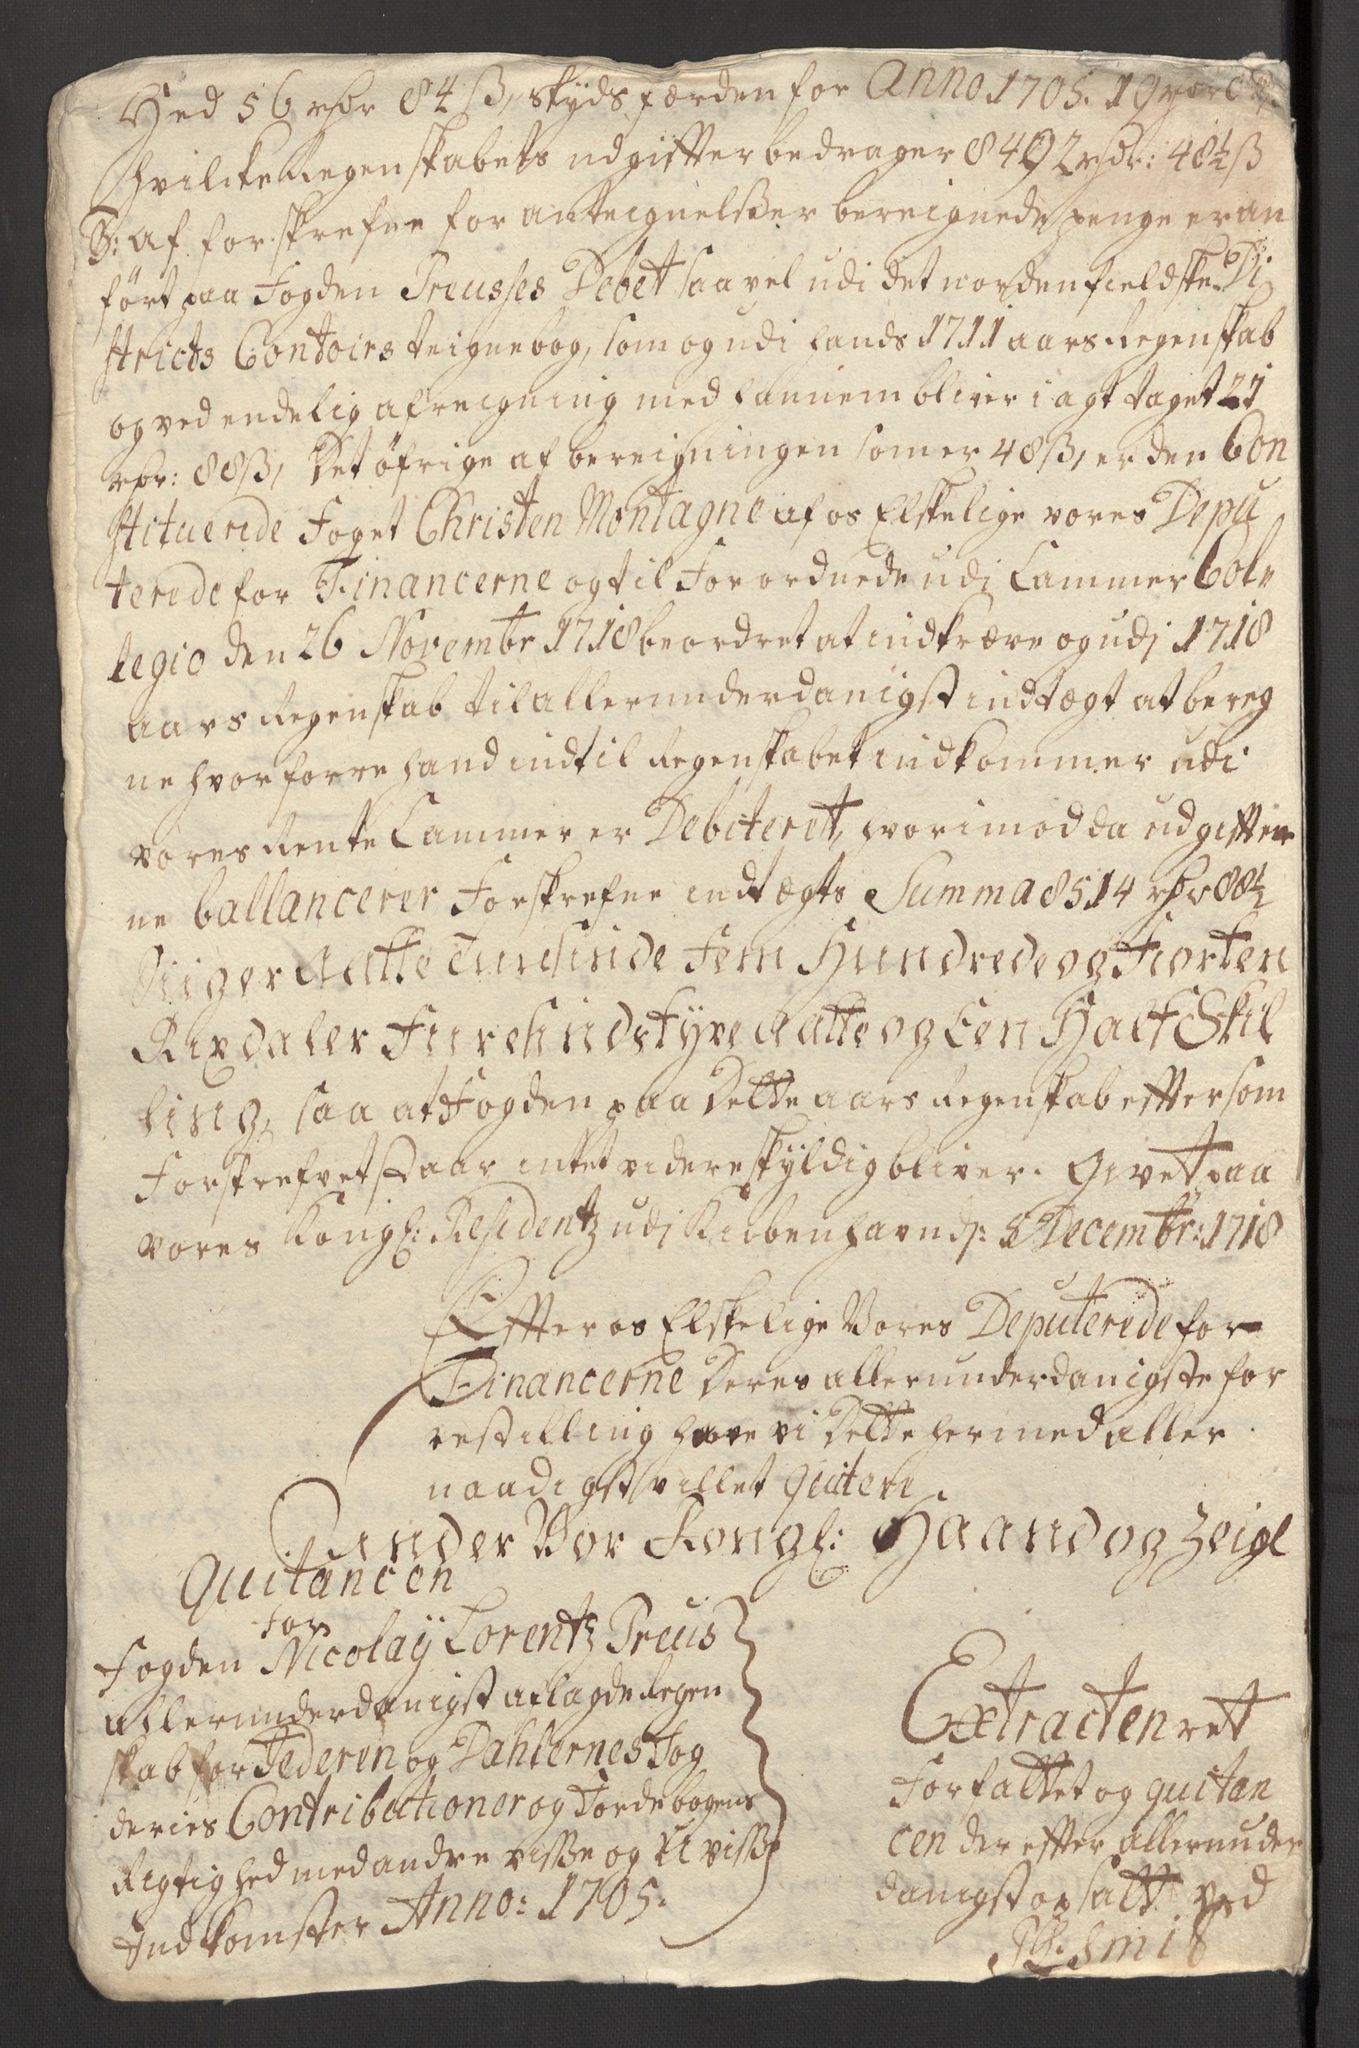 Hed 56 rdr 84 ß, skyds færden for Anno 1705. 19 rdr
hvilcke Regenskabets udgiffter bedrager 8492 rdr: 48½ ß
B: af forskrefne for anteignelsser bereignede penge er an
ført paa Fogden Preusses Debet saavel udi det nordenfieldske Di
stricts Contoirs teignebog, som og udi hands 1711 aars Regenskab
og ved endelig afreigning med hannem bliver i agt taget 21
rdr: 88 ß, Det øfrige af bereigningen som er 48 ß, er den Con
stituerede Foget Christen Montagne af os Elskelige vores Depu
terede for Financerne og til Forordnede udi Cammer Col
legio den 26 Novembr 1718 beordret at indkræve og udj 1718
aars Regenskab til allerunderdanigst indtægt at bereg
ne hvorforre hand indtil Regenskabet indkommer udi
vores Rente Cammer er Debiteret, hvorimod da udgifften
ne ballancerer Forskrefne indtægts Summa 8514 rdr 88½
Siiger Aatte Tusinde Fem Hundrede og Fiorten
Rixdaler Firesindstyve Aatte og Een Half Skil
ling, saa at Fogden paa Dette aars Regenskab efftersom
Forskrefvet staar intet videre skyldig bliver. Givet paa
vores Kongl: Residentz udj Kiøbenhavn d: 5 Decembr: 1718
Effter os Elskelige Vores Deputerede for
Financerne Deres allerunderdanigste for
restilling have vi Dette hermed aller
naadigst villet quitere
Under Vor Kongl: Haand og Zeigl
Quitancen
for
Fogden Nicolaÿ Lorentz Preus
allerunderdanigst aflagde Regen
skab for Federen og Dahlernes Fog
deries Contributioner og Jordebogens
Rigtighed med andre visse og U visse
Indkomster Anno: 1705.
Extracten ret
Forfattet og quitan
cen der effter allerunder
danigst opsatt ved
Smit